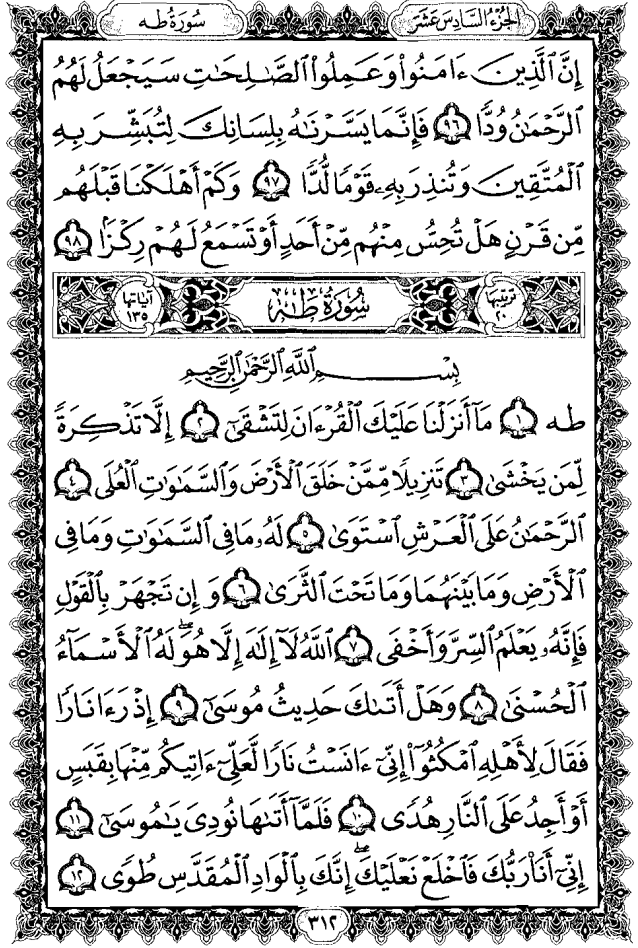 الجزء السادس عشر
سورة طه
إِنَّ ٱلَّذِينَ ءَامَنُوا۟ وَعَمِلُوا۟ ٱلصَّٰلِحَٰتِ سَيَجْعَلُ لَهُمُ
ٱلرَّحْمَٰنُ وُدًّا ٩٦ فَإِنَّمَا يَسَّرْنَٰهُ بِلِسَانِكَ لِتُبَشِّرَ بِهِ
ٱلْمُتَّقِينَ وَتُنذِرَ بِهِۦ قَوْمًا لُّدًّا ٩٧ وَكَمْ أَهْلَكْنَا قَبْلَهُم
مِّن قَرْنٍ هَلْ تُحِسُّ مِنْهُم مِّنْ أَحَدٍ أَوْ تَسْمَعُ لَهُمْ رِكْزًۢا ٩٨
ترتيبها ٢٠ سُورَةُ طه آياتها ١٣٥
بِسْمِ ٱللَّهِ ٱلرَّحْمَٰنِ ٱلرَّحِيمِ
طه ١ مَآ أَنزَلْنَا عَلَيْكَ ٱلْقُرْءَانَ لِتَشْقَىٰٓ ٢ إِلَّا تَذْكِرَةً
لِّمَن يَخْشَىٰ ٣ تَنزِيلًا مِّمَّنْ خَلَقَ ٱلْأَرْضَ وَٱلسَّمَٰوَٰتِ ٱلْعُلَى ٤
ٱلرَّحْمَٰنُ عَلَى ٱلْعَرْشِ ٱسْتَوَىٰ ٥ لَهُۥ مَا فِى ٱلسَّمَٰوَٰتِ وَمَا فِى
ٱلْأَرْضِ وَمَا بَيْنَهُمَا وَمَا تَحْتَ ٱلثَّرَىٰ ٦ وَإِن تَجْهَرْ بِٱلْقَوْلِ
فَإِنَّهُۥ يَعْلَمُ ٱلسِّرَّ وَأَخْفَى ٧ ٱللَّهُ لَآ إِلَٰهَ إِلَّا هُوَ ۖ لَهُ ٱلْأَسْمَآءُ
ٱلْحُسْنَىٰ ٨ وَهَلْ أَتَىٰكَ حَدِيثُ مُوسَىٰٓ ٩ إِذْ رَءَا نَارًا
فَقَالَ لِأَهْلِهِ ٱمْكُثُوٓا۟ إِنِّىٓ ءَانَسْتُ نَارًا لَّعَلِّىٓ ءَاتِيكُم مِّنْهَا بِقَبَسٍ
أَوْ أَجِدُ عَلَى ٱلنَّارِ هُدًى ١٠ فَلَمَّآ أَتَىٰهَا نُودِىَ يَٰمُوسَىٰٓ ١١
إِنِّىٓ أَنَا۠ رَبُّكَ فَٱخْلَعْ نَعْلَيْكَ ۖ إِنَّكَ بِٱلْوَادِ ٱلْمُقَدَّسِ طُوًى ١٢
٣١٢